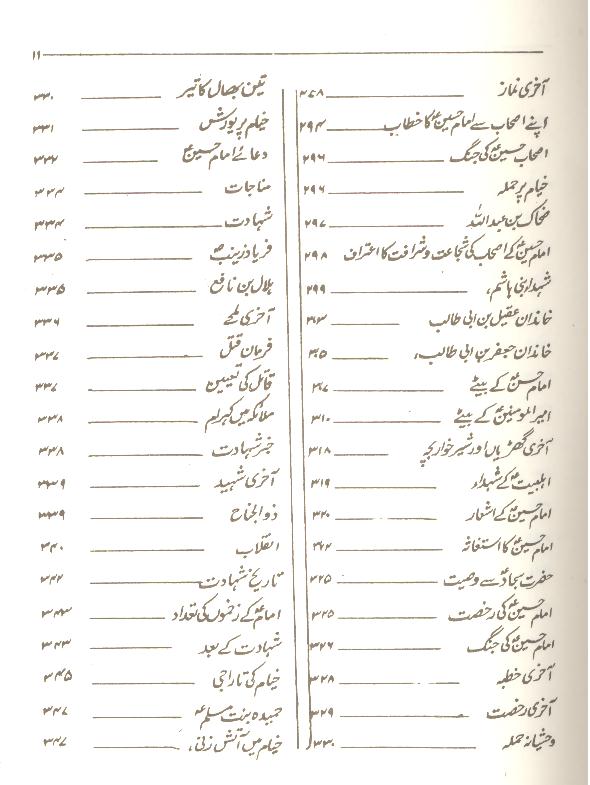 ۱۱
آخری نماز ۲۸۸
اپنے اصحاب سے امام حسینؑ کا خطاب ۲۹۴
اصحاب حسینؑ کی جنگ ۲۹۶
خیام پر حملہ ۲۹۶
ضحاک بن عبداللہ ۲۹۷
امام حسینؑ کے اصحاب کی شجاعت و شرافت کا اعتراف ۲۹۸
شہداء بنی ہاشم ۲۹۹
خاندان عقیل بن ابی طالب
خاندان جعفر بن ابی طالب
امام حسنؑ کے بیٹے
امیرالمومنینؑ کے بیٹے ۳۱۰
آخری گھڑیاں اور شیرخوار بچہ ۳۱۸
اہلبیتؑ کے شہداء ۳۱۹
امام حسینؑ کے اشعار ۳۲۰
امام حسینؑ کا استغاثہ
حضرت سجادؑ سے وصیت ۳۲۵
امام حسینؑ کی رخصت ۳۲۵
امام حسینؑ کی جنگ ۳۲۶
آخری خطبہ ۳۲۸
آخری رخصت ۳۲۹
وحشیانہ حملہ ۳۳۰
تین بھال کا تیر ۳۳۰
خیام پر یورش ۳۳۱
دعائے امام حسینؑ ۳۳۲
مناجات ۳۳۴
شہادت ۳۳۴
فریاد زینبؑ ۳۳۵
ہلال بن نافع ۳۳۵
آخری لمحے ۳۳۶
فرمان قتل ۳۳۷
قاتل کی تعیین ۳۳۷
ملائکہ میں کہرام ۳۳۸
خبر شہادت ۳۳۸
آخری شہید ۳۳۹
ذوالجناح ۳۳۹
انقلاب ۳۴۰
تاریخ شہادت ۳۴۲
امامؑ کے زخموں کی تعداد ۳۴۳
شہادت کے بعد ۳۴۳
خیام کی تاراجی ۳۴۵
حمیدہ بنت مسلمؑ ۳۴۷
خیام میں آتش زنی ۳۴۷